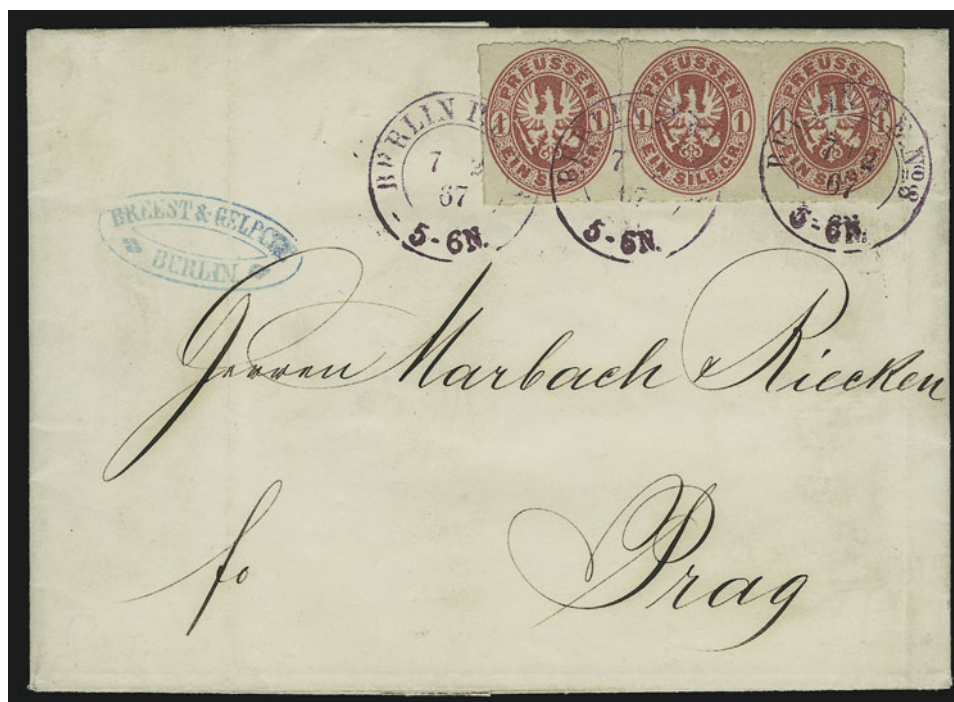 PREUSSEN
1 1
EIN SILB.GR.
PREUSSEN
1 1
EIN SILB.GR.
PREUSSEN
1 1
EIN SILB.GR.
BERLIN
7
67
5-6N.
7
67
5-6N.
No 8
7
67
5-6N.
BREEST & GELPCKE
BERLIN.
Herren Marbach & Riecken
fo
Prag